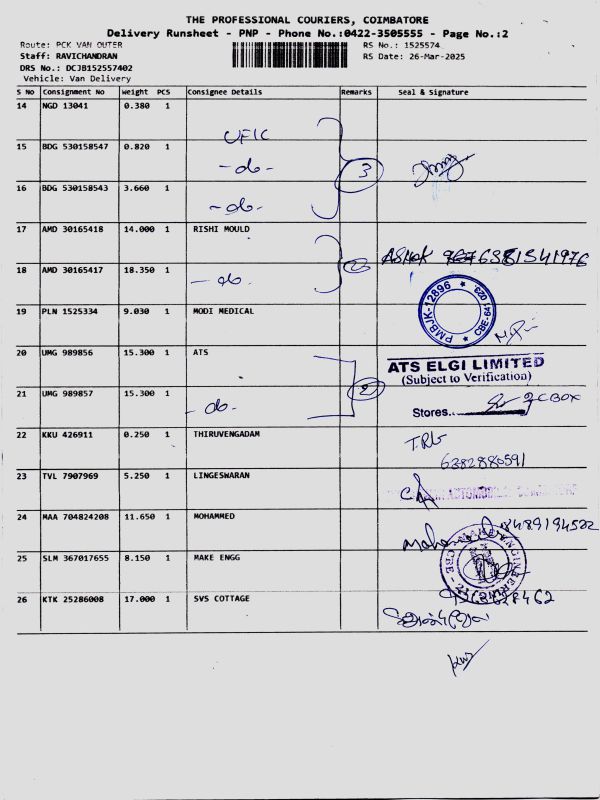 THE PROFESSIONAL COURIERS, COIMBATORE
Delivery Runsheet - PNP - Phone No.:0422-3505555 - Page No.:2
Route: PCK VAN OUTER
RS No.: 1525574
Staff: RAVICHANDRAN
RS Date: 26-Mar-2025
DRS No.: DCJB152557402
Vehicle: Van Delivery
S No Consignment No Weight PCS Consignee Details Remarks Seal & Signature
14 NGD 13041 0.380 1
UFIC
15 BDG 530158547 0.820 1
-do- 3
16 BDG 530158543 3.660 1
-do-
17 AMD 30165418 14.000 1 RISHI MOULD
ASHOK 6381541976
18 AMD 30165417 18.350 1 -do- 2
19 PLN 1525334 9.030 1 MODI MEDICAL
PMBJK-12896 CBE-641
20 UMG 989856 15.300 1 ATS
ATS ELGI LIMITED
(Subject to Verification)
21 UMG 989857 15.300 1 2
-do-
Stores.. BOX
22 KKU 426911 0.250 1 THIRUVENGADAM
6382880591
23 TVL 7907969 5.250 1 LINGESWARAN
24 MAA 704824208 11.650 1 MOHAMMED
8489194522
25 SLM 367017655 8.150 1 MAKE ENGG
26 KTK 25286008 17.000 1 SVS COTTAGE